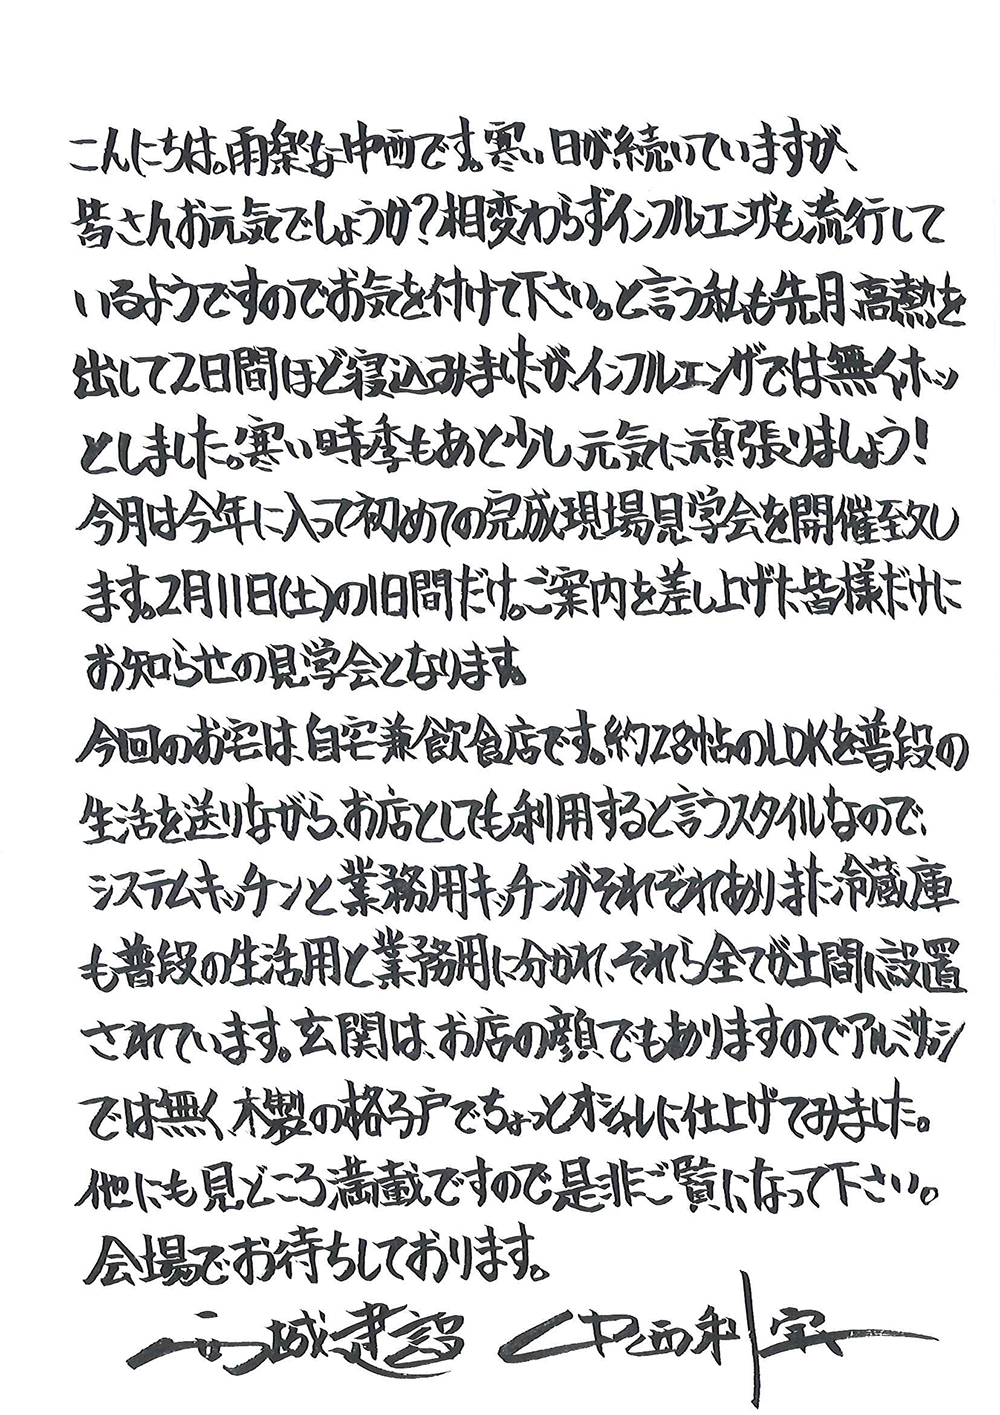 こんにちは。雨楽な中西です。寒い日が続いていますが、
皆さんお元気でしょうか？相変わらずインフルエンザも流行して
いるようですのでお気を付けて下さい。と言う私も先月、高熱を
出して2日間ほど寝込みましたが、インフルエンザでは無く、ホッ
としました。寒い時季もあと少し、元気に頑張りましょう！
今月は今年に入って初めての完成現場見学会を開催致し
ます。2月11日(土)の1日間だけ。ご案内を差し上げた皆様だけに
お知らせの見学会となります。
今回のお宅は、自宅兼飲食店です。約28帖のLDKを普段の
生活を送りながら、お店としても利用すると言うスタイルなので、
システムキッチンと業務用キッチンがそれぞれあります。冷蔵庫
も普段の生活用と業務用に分かれ、それら全てが土間に設置
されています。玄関は、お店の顔でもありますのでアルミサッシ
では無く、木製の格子戸でちょっとオシャレに仕上げてみました。
他にも見どころ満載ですので是非ご覧になって下さい。
会場でお待ちしております。
西城建設 中西利宗